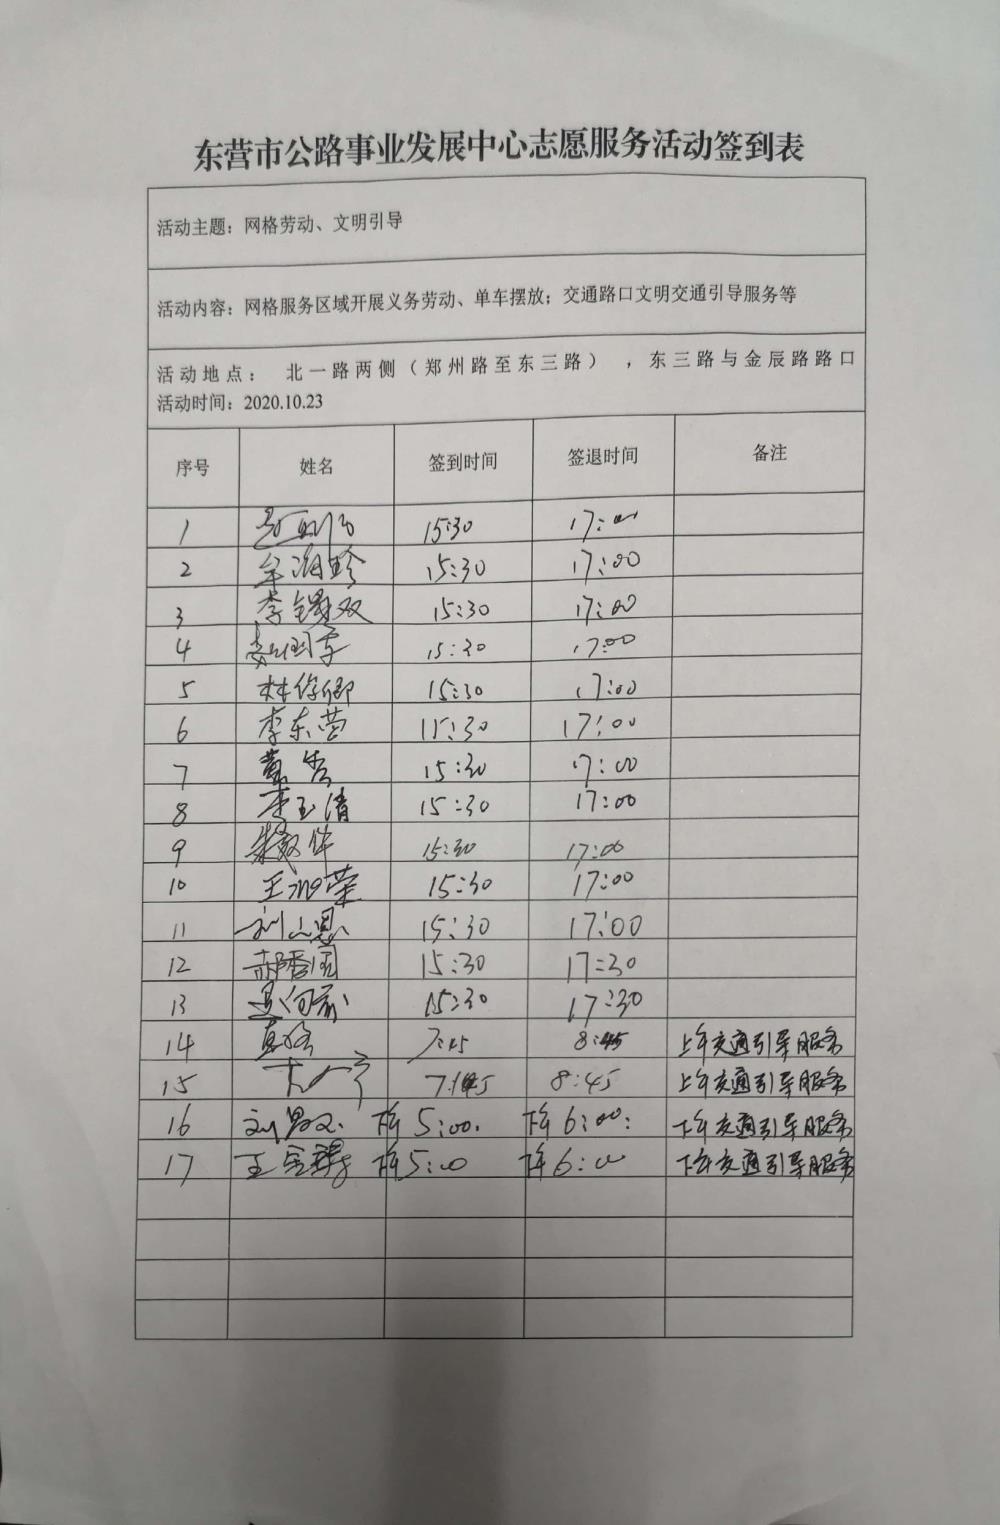 东营市公路事业发展中心志愿服务活动签到表
活动主题：网格劳动、文明引导
活动内容：网格服务区域开展义务劳动、单车摆放；交通路口文明交通引导服务等
活动地点： 北一路两侧（郑州路至东三路），东三路与金辰路路口
活动时间：2020.10.23
序号 姓名 签到时间 签退时间 备注
1 15:30 17:00
2 15:30 17:00
3 李 双 15:30 17:00
4 15:30 17:00
5 林 卿 15:30 17:00
6 李东营 15:30 17:00
7 15:30 17:00
8 李玉清 15:30 17:00
9 15:30 17:00
10 王 荣 15:30 17:00
11 刘 恩 15:30 17:00
12 郝香国 15:30 17:30
13 15:30 17:30
14 7:45 8:45 上午交通引导服务
15 7:45 8:45 上午交通引导服务
16 刘 下午5:00. 下午6:00: 下午交通引导服务
17 王 下午5:00 下午6:00 下午交通引导服务